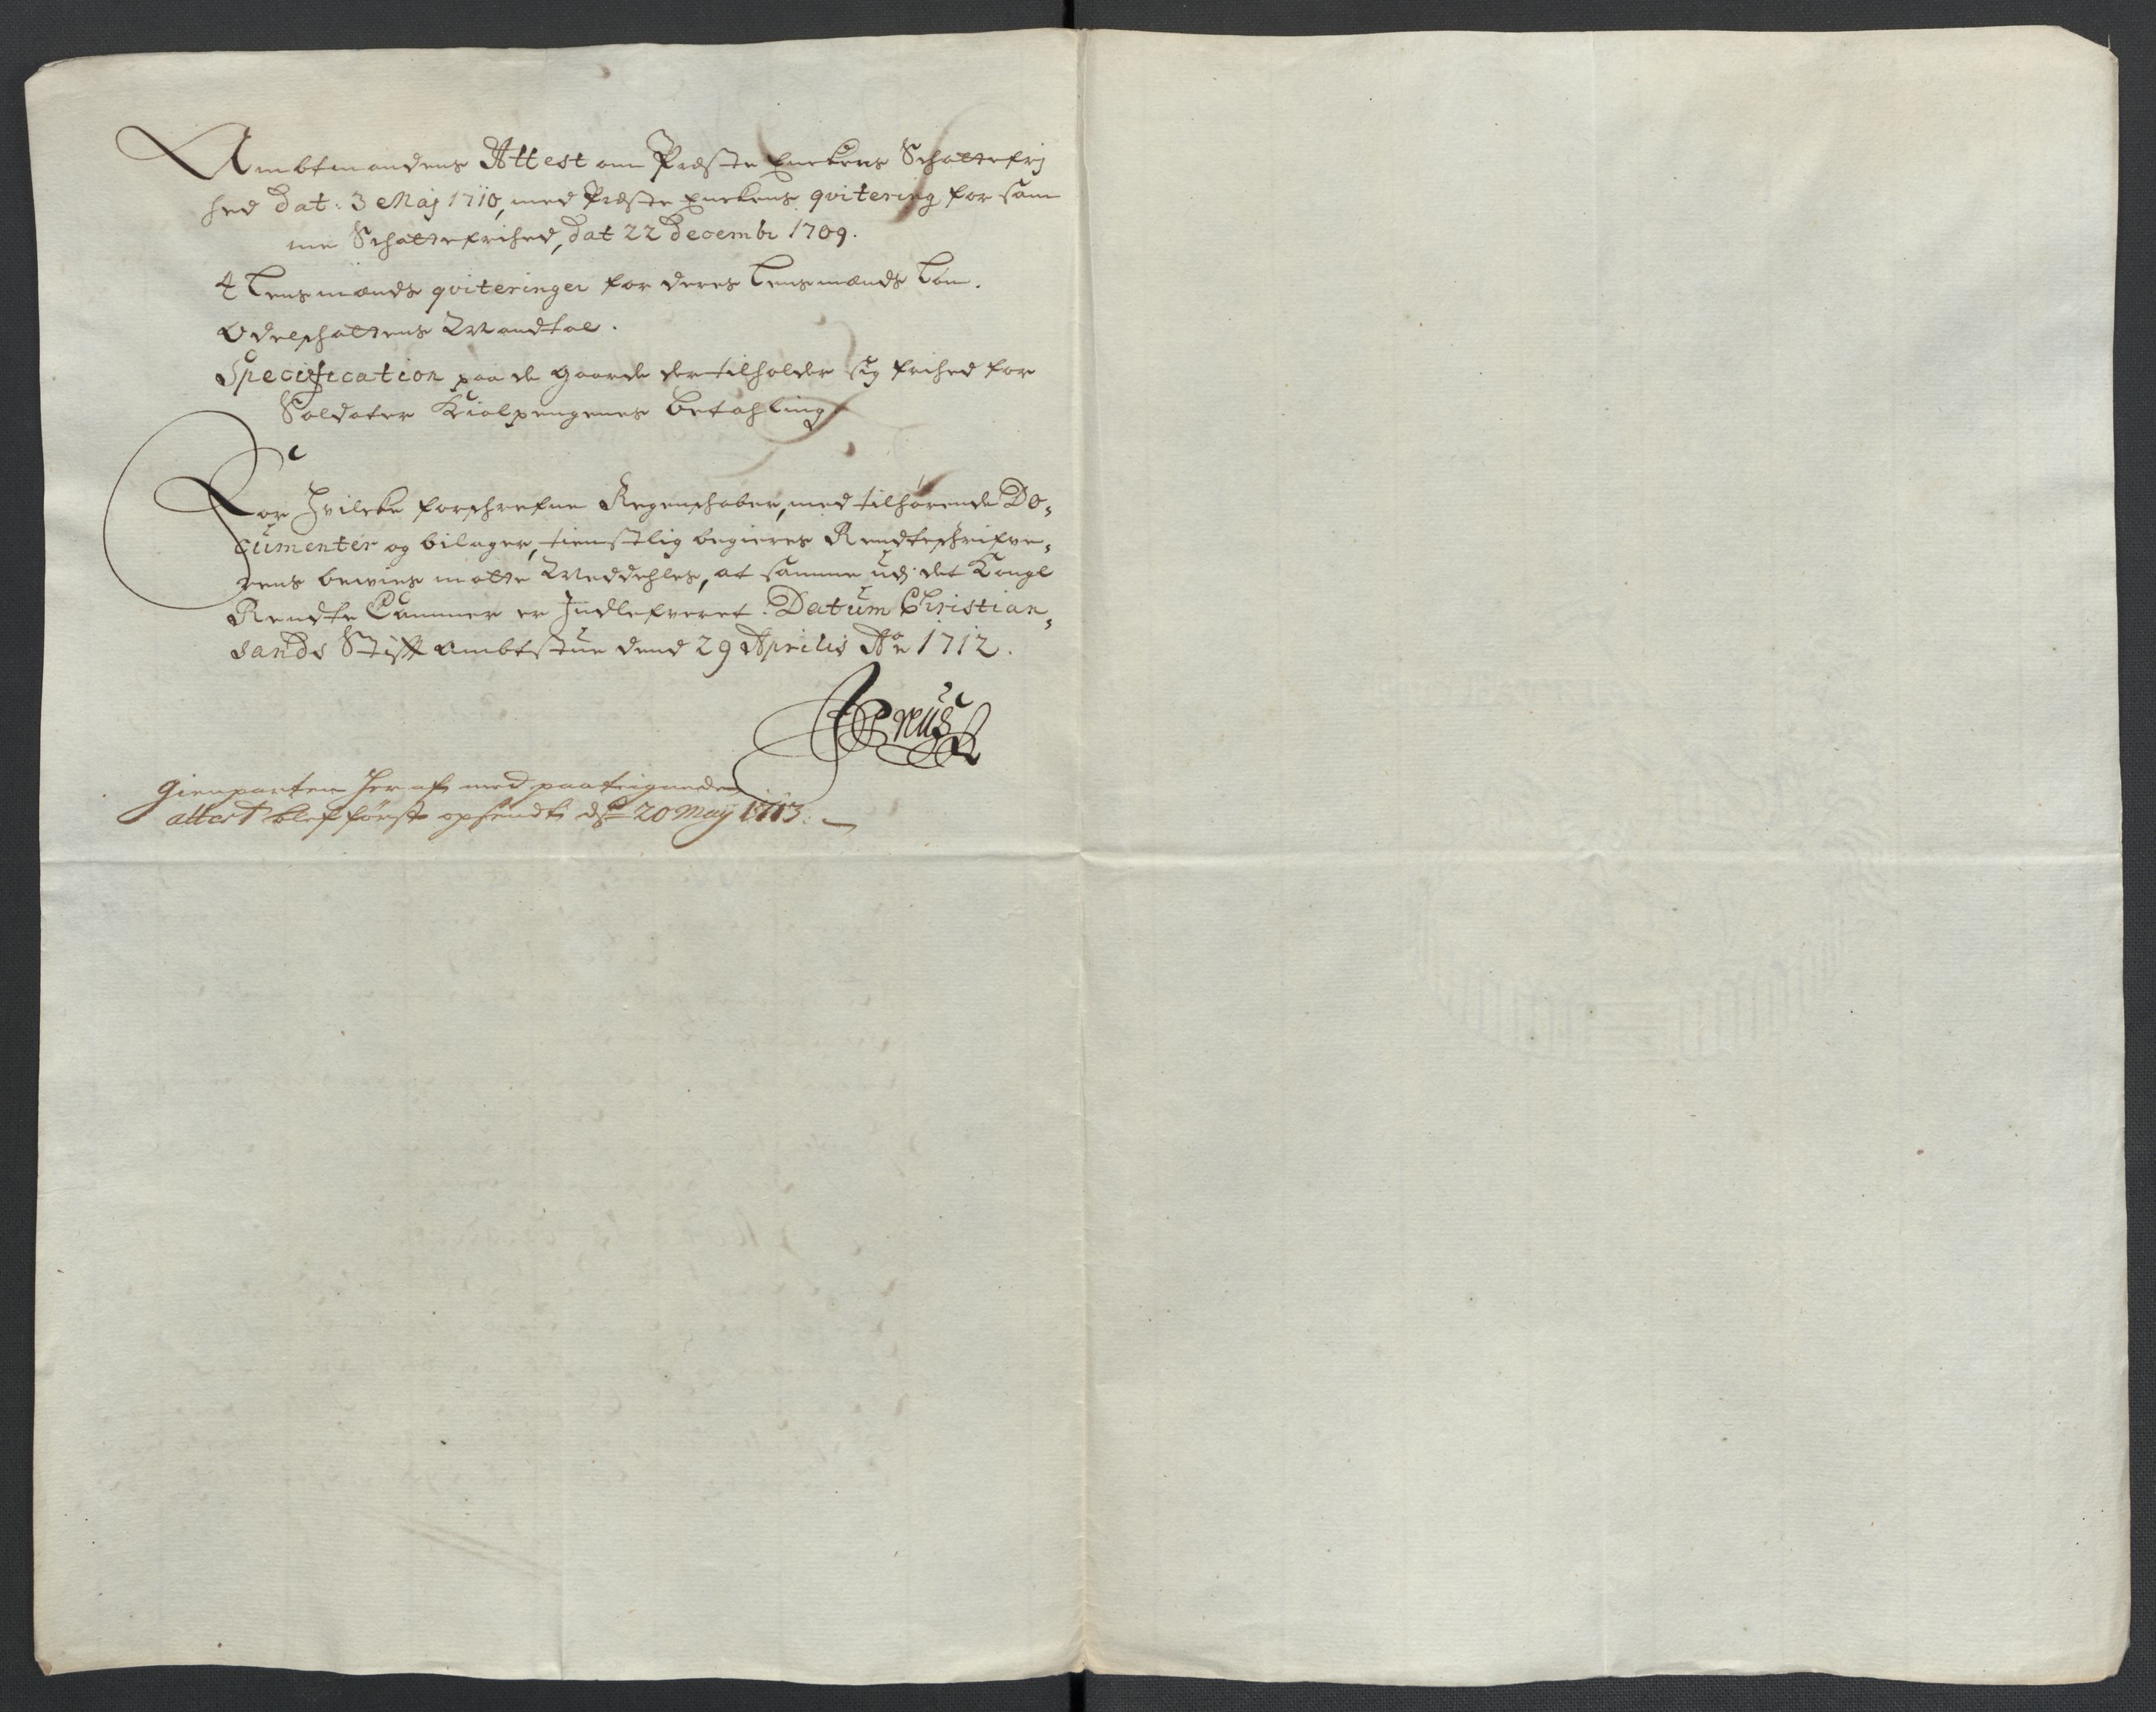 Ambtmandens Attest om Præste Enckens Schattefrj
hed Dat: 3 Maj 1710, med Præste Enckens qvitering for sam
me Schattefrihed, Dat 22 Decembr 1709.
4 Lensmænds qviteringer for deres Lensmænds Løn.
Odelschattens Mandtal.
Specification paa de gaarde der tilholder sig frihed for
Soldater Kiolpengenes betahling
For Hvilcke forschrefne Regenschaber, med tilhørende Do,
cumenter og bilager, tienstlig begieres Rendteschrifve,
rens beviis motte Meddehles, at samme udj det Kongl
Rendte Cammer er Indlefveret. Datum Christian,
sands Stift Ambtstue dend 29 Aprilis Ao 1712.
Gienparten Her af med paateignede
attest blef først opsendt d 20 Maij 1713.